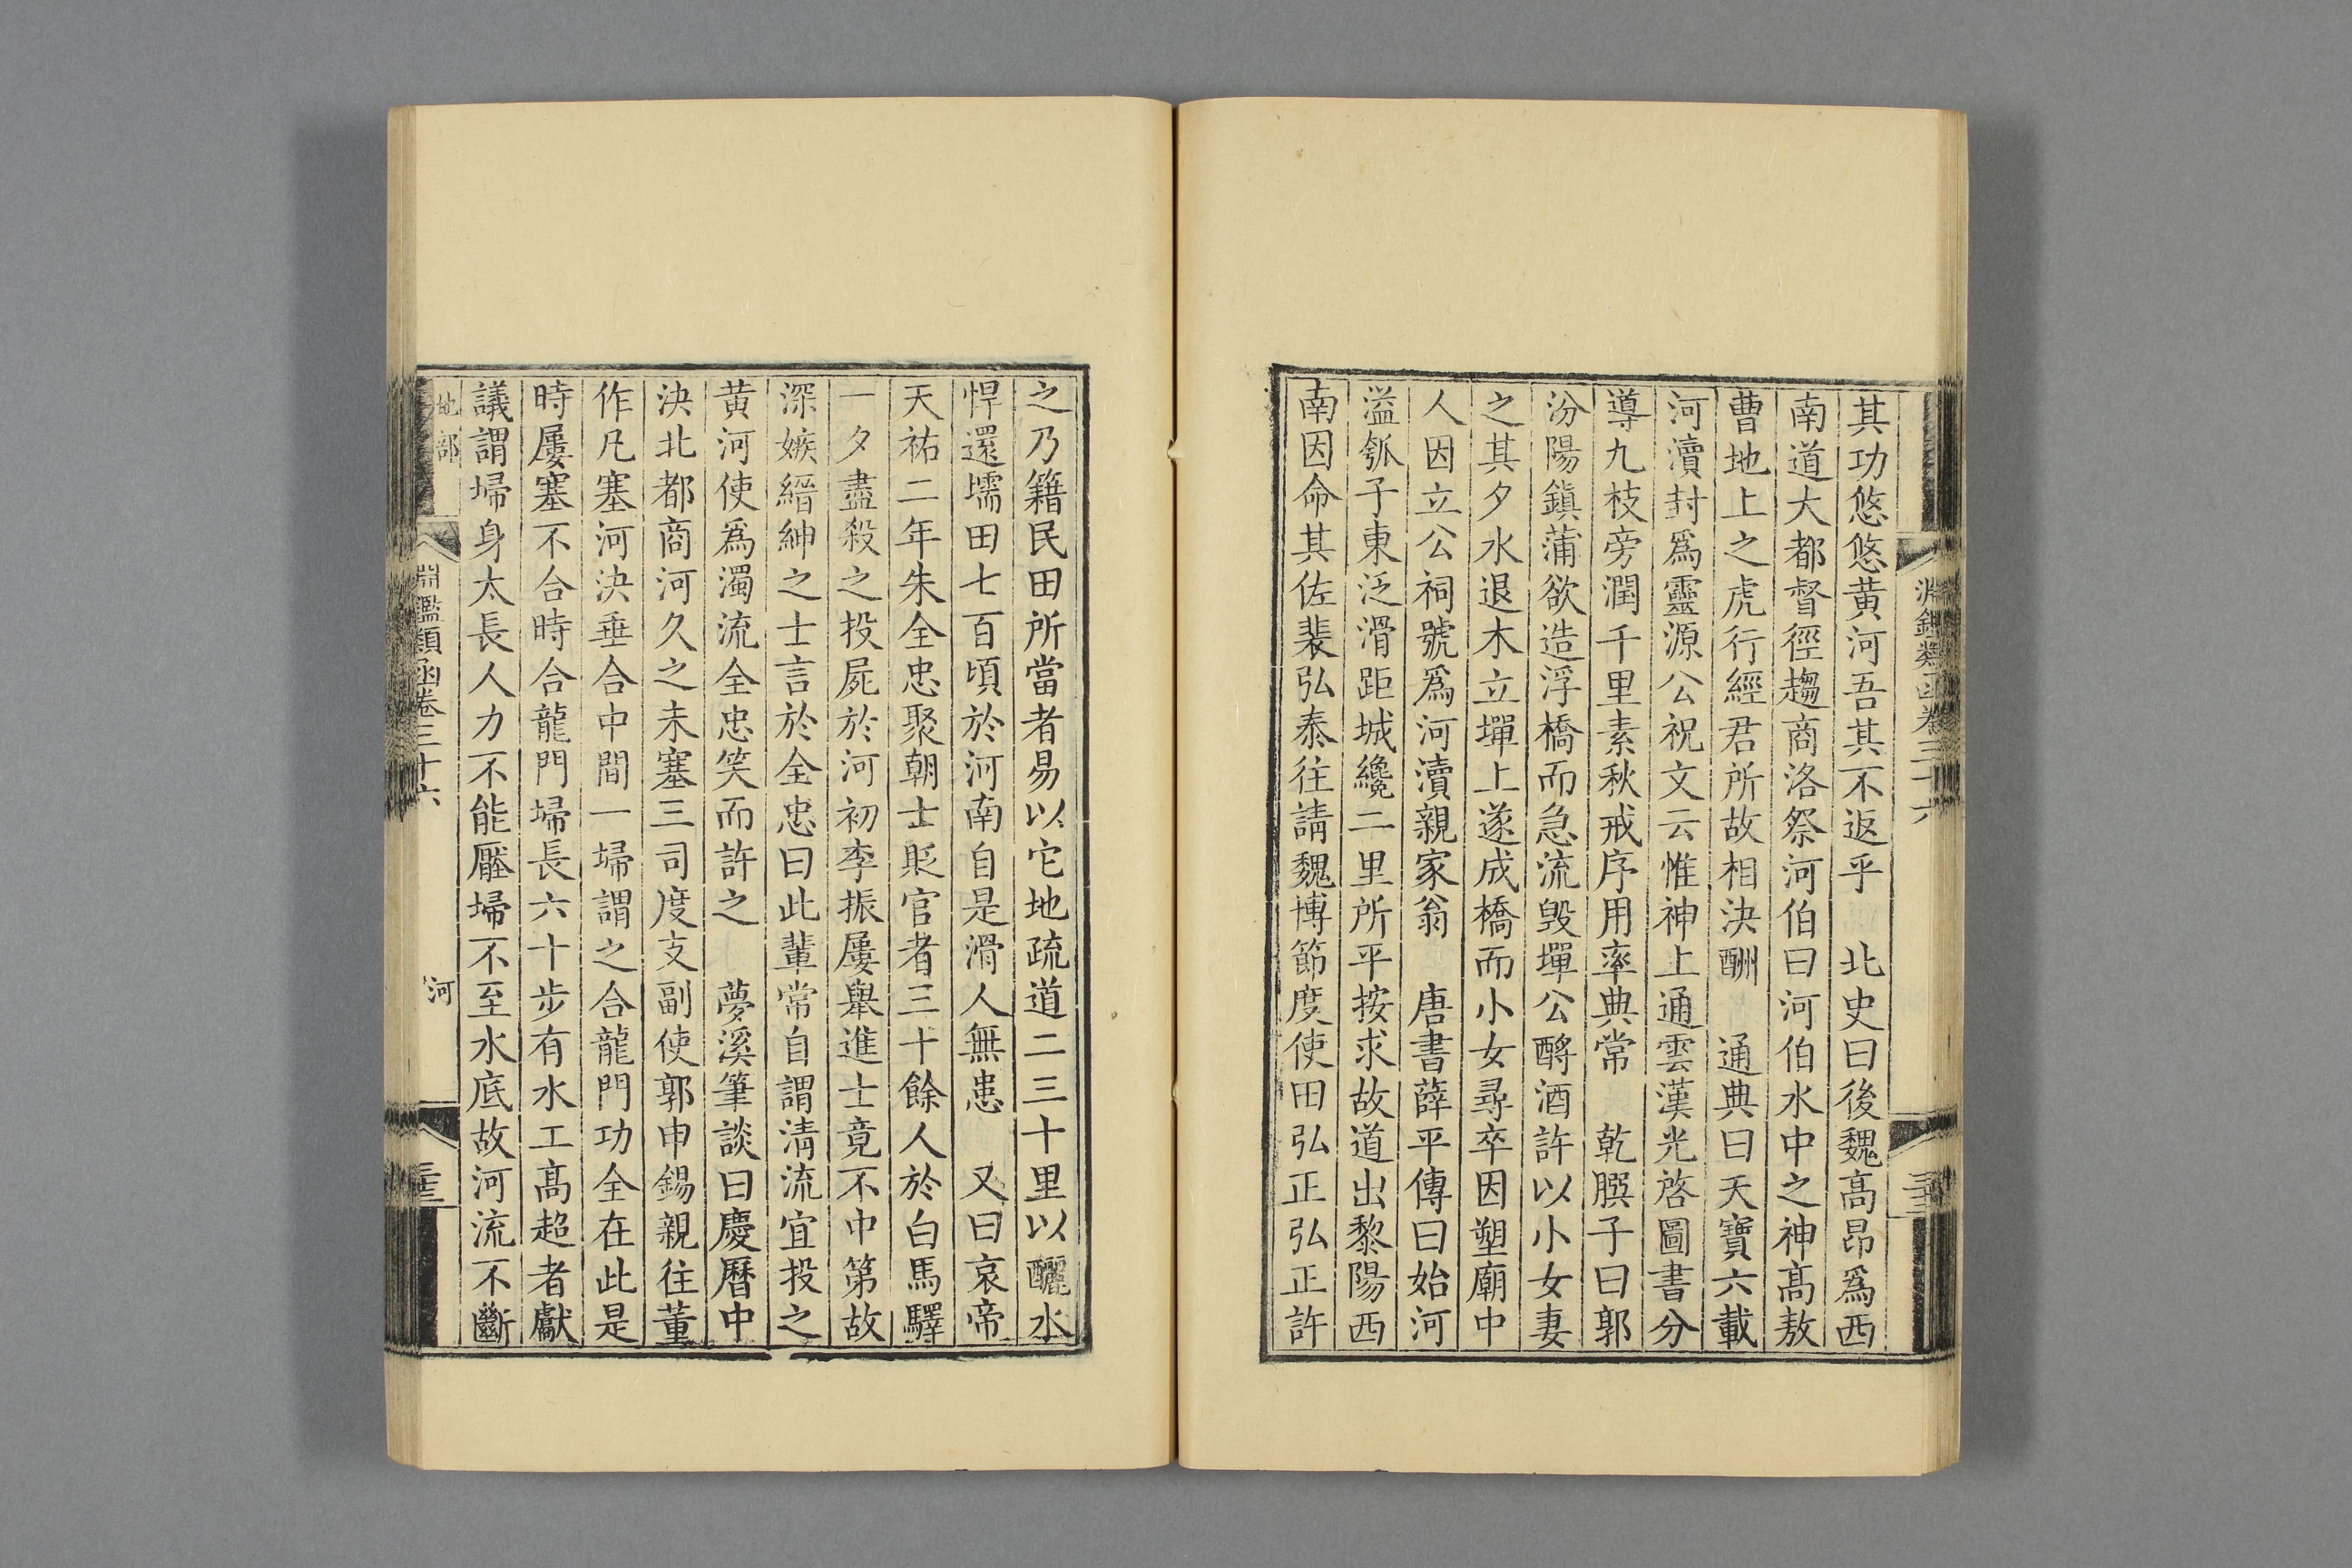 淵鑑類函卷三十六
其功悠悠黄河吾其不返乎　北史曰後魏高昂爲西
南道大都督徑趨商洛祭河伯曰河伯水中之神高敖
曹地上之虎行經君所故相決酬　通典曰天寶六載
河瀆封爲靈源公祝文云惟神上通雲漢光啓圖書分
導九枝旁潤千里素秋戒序用率典常　乾𦠆子曰郭
汾陽鎭蒲欲造浮橋而急流毁墠公酹酒許以小女妻
之其夕水退木立墠上遂成橋而小女尋卒因塑廟中
人因立公祠號爲河瀆親家翁　唐書薛平傳曰始河
溢瓠子東泛滑距城纔二里所平按求故道出黎陽西
南因命其佐裴弘泰往請魏博節度使田弘正弘正許
之乃籍民田所當者易以它地疏道二三十里以釃水
悍還壖田七百頃於河南自是滑人無患　又曰哀帝
天祐二年朱全忠聚朝士貶官者三十餘人於白馬驛
一夕盡殺之投屍於河初李振屢舉進士竟不中第故
深嫉縉紳之士言於全忠曰此輩常自謂清流宜投之
黄河使爲濁流全忠笑而許之　夢溪筆談曰慶曆中
決北都商河久之未塞三司度支副使郭申錫親往董
作凡塞河決垂合中間一埽謂之合龍門功全在此是
時屢塞不合時合龍門埽長六十步有水工高超者獻
議謂埽身太長人力不能壓埽不至水底故河流不斷
地部
淵鑑類函卷三十六
河